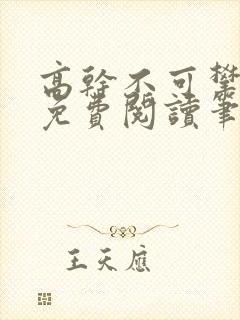 高幹不可攀
免費閱讀筆
王天應